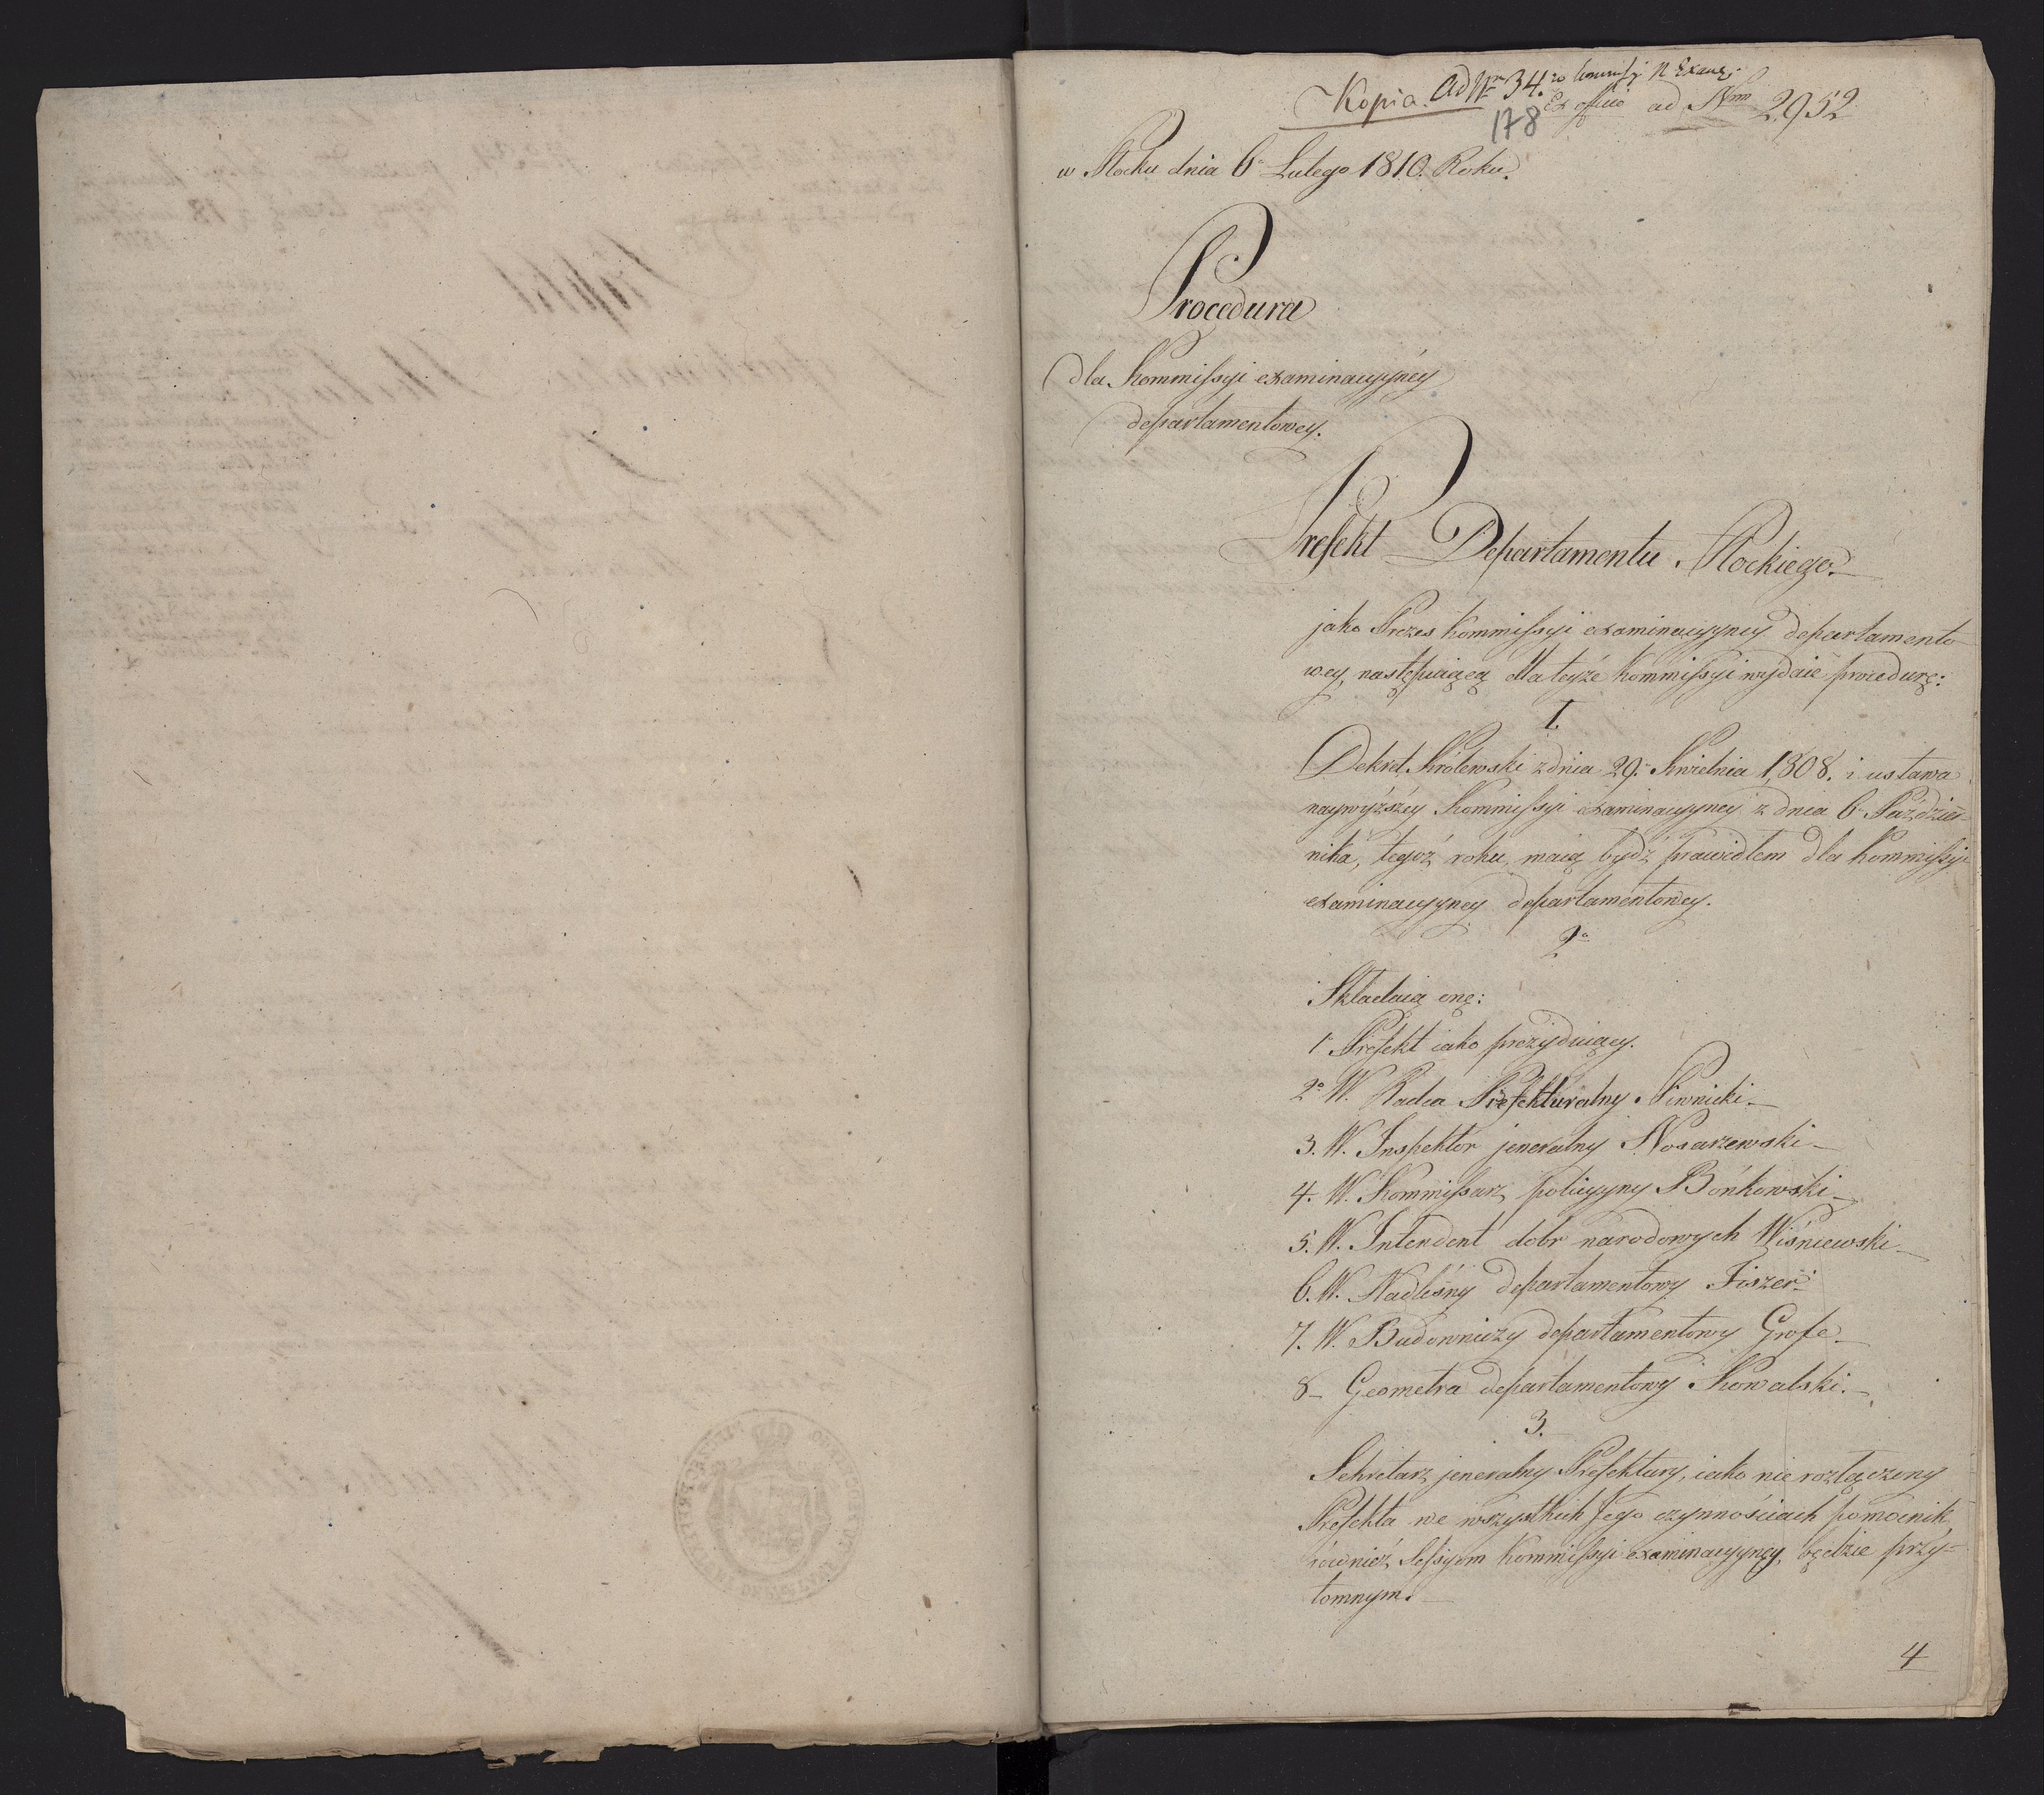 Kopia. Ad Nr 34.
Ex officio ad Nrm 2952
178
w Płocku dnia 6 Lutego 1810. Roku.
Procedura
dla Kommissyi examinacyyney
departamentowey.
Prefekt Departamentu Płockiego
jako Prezes Kommissyi examinacyyney departamento
wey, następuiącą dla teyże Kommissyi wydaie procedurę:
I.
Dekret Królewski z dnia 29. Kwietnia 1808. i ustawa
naywyższey Kommissyi examinacyyney z dnia 6 Paździer=
nika, tegoż roku, maią bydź prawidłem dla Kommissyi
examinacyyney departamentowey.
2o
Składaią onę:
1. Prefekt iako prezyduiący.
2o W. Radca Prefekturalny Piwnicki.
3. W. Inspektor jeneralny Nosarzewski
4. W. Kommissarz policyyny Bońkowski
5. W. Intendent dobr narodowych Wiśniewski
6. W. Nadleśny departamentowy Fiszer
7. W. Budowniczy departamentowy Groffe
8 Geometra departamentowy Kowalski.
3.
Sekretarz jeneralny Prefektury, iako nie rozłączony
Prefekta we wszystkich Jego czynnościach pomocnik,
również Sessyom Kommissyi examinacyyney, będzie przy=
tomnym.
4